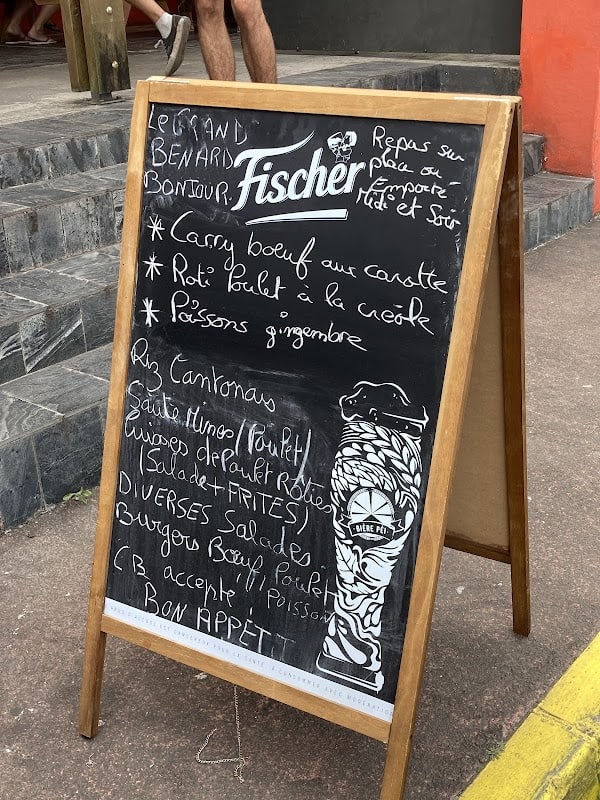 Le GRAND
BENARD
BONJOUR.
Fischer
Repas sur
place ou
Emporté
Midi et Soir
* Carry boeuf aux carotte
* Roti Poulet à la créole
* Poissons gingembre
Riz Cantonais
Sauté Mines / Poulet /
Cuisses de Poulet Rôties
(Salade + FRITES)
DIVERSES Salades
Burgers Bœuf, Poulet,
POISSON
CB accepté
BON APPÉTIT
BIÈRE PÉI
L'ABUS D'ALCOOL EST DANGEREUX POUR LA SANTÉ. À CONSOMMER AVEC MODÉRATION